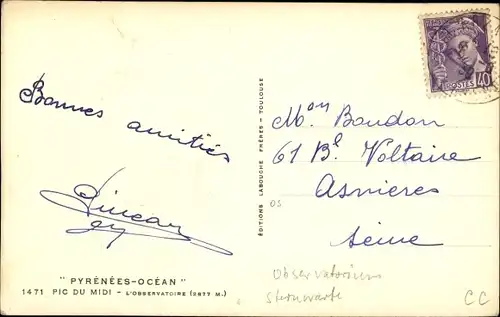 POSTES
40
Bonnes amitiés
Mon Boudon
61 Bd Voltaire
Asnières
Seine
ÉDITIONS LABOUCHE FRÈRES - TOULOUSE
OS
" PYRÉNÉES-OCÉAN "
1471 PIC DU MIDI - L'OBSERVATOIRE (2877 M.)
Observatorium
Sternwarte
CC